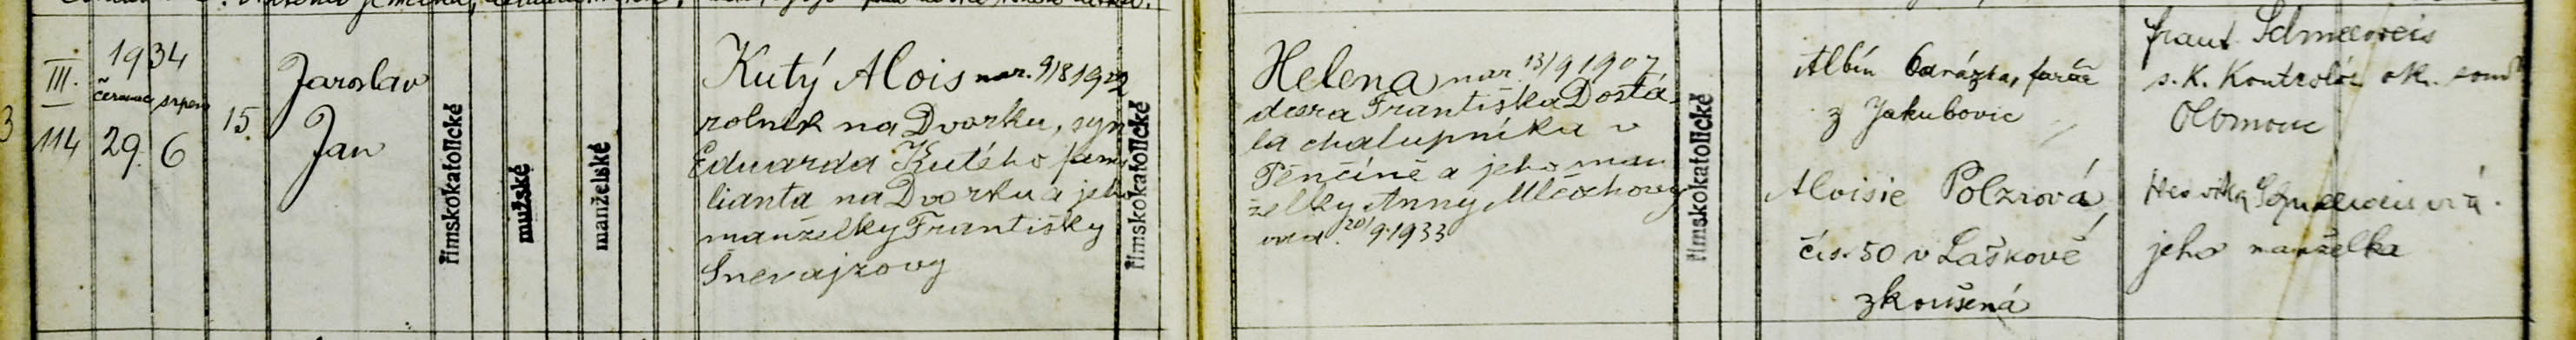 III.
114
1934
červenec srpen
29. 6
15.
Jaroslav
Jan
římskokatolické
mužské
manželské
Kutý Alois nar. 9/8 1902
rolník na Dvorku, syn
Eduarda Kutého fami
lianta na Dvorku a jeho
manželky Františky
Šnevajzovy
římskokatolické
Helena nar. 13/9 1907
dcera Františka Dostá-
la chalupníka v
Pěnčíně a jeho man
želky Anny Mlčochovy
20/9 1933
římskokatolické
Albín farář
z Jakubovic
Aloisie Polzrová
čís. 50 v Laškově
zkoušená
frant.
s. K. Kontrolór ok.
Olomouc
jeho manželka